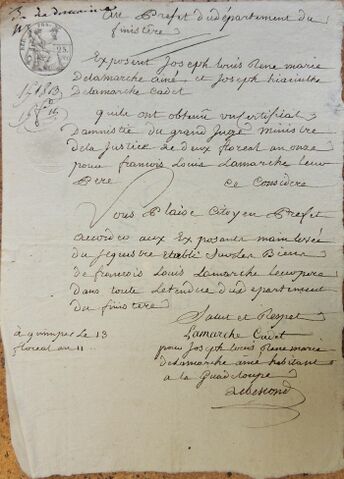 Au Prefet du département du
finistère
25.
Exposent Joseph louis Rene marie
Delamarche ainé et Joseph hiacinthe
Delamarche Cadet
quils ont obtenu un Certificat
Damnistie du grand Juge ministre
de la Justice le deux floreal an onze
pour francois Louis Lamarche leur
Pere
Ce Considere
Vous Plaise Citoyen Prefet
accorder aux Exposants main levée
du sequestre etabli sur les Biens
de francois Louis Lamarche leur pere
dans toute letendue du departement
du finistère
Salut et Respet
Lamarche Cadet
à quimper le 13
floreal an 11
pour Joseph louis Rene marie
delamarche ainé habitant
a la Guadeloupe